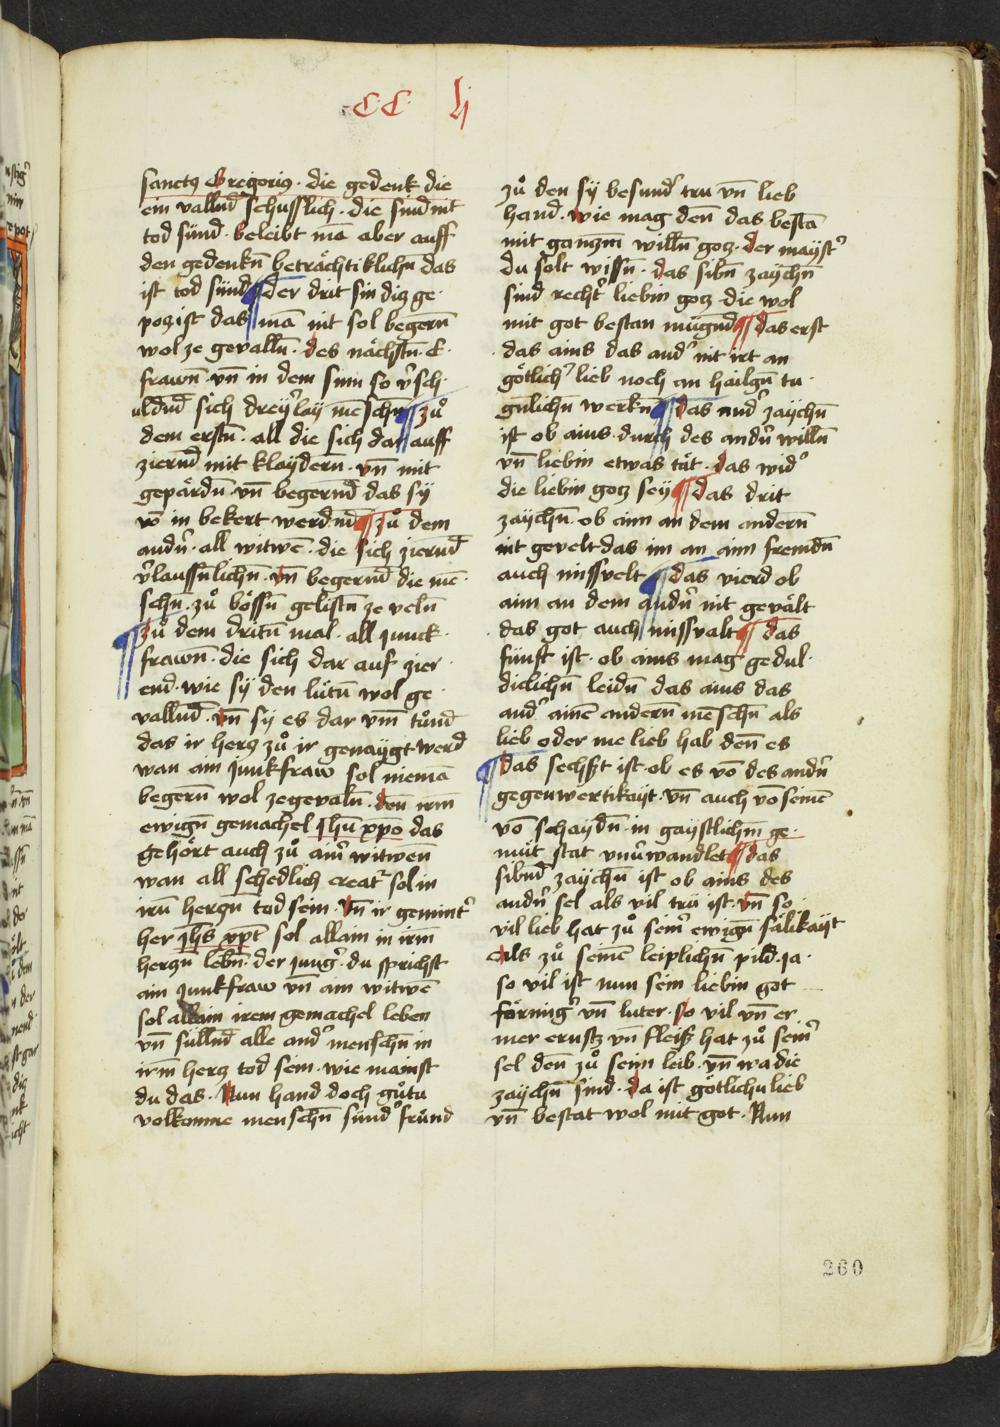 C·C· lj
sanctꝯ Gregoriꝯ · die gedenk die
ein vallnd̄ schusslich · die sind nit
tod sünd · beleibt mā aber auff
den gedenkn̄ beträchtiklichn̄ das
ist tod sünd ¶ Der drit sin diz ge·
potz ist das mā nit sol begern̄
wol ze gevalln̄ · des nächstn̄ · E·
frawn̄ · vn̄ in dem sinn so v̾sch·
uldnd̄ sich dreẏ̾laẏ mēschn̄ ¶ zů
dem erstn̄ · all die sich dar auff
ziernd̄ mit klaẏdern̄ · vn̄ mit
gepärdn̄ · vn̄ begernd̄ das sẏ
vō in bekert werdnd̄ ¶ zů dem
andn̾ · all witwē · die sich ziernd̄
v̾laussnlichn̄ · vn̄ begernd̄ die mē·
schn̄ · zů bössn̄ gelüstn̄ ze veln̄
¶ zů dem drittn̄ mal · all junck·
frawn̄ · die sich dar auf zier·
end · wie sẏ den lütn̄ wol ge·
vallnd̄ · vn̄ sẏ es dar vm̄ tůnd
das ir hertz zů ir genaẏgt werd
wan ain junkfraw sol niemā
begern̄ wol zegevaln̄ · den̄ irm̄
ewign̄ gemachel jhū xpō das
gehört auch zů ain̾ witwen̄
wan all schedlich creat̾ sol in
irn̄ hertzn̄ tod sein · Vn̄ ir gemint̾
her jh̄s xpt̄ sol allain in irm̄
hertzn̄ lebn̄ · der jung̾ · du sprichst
ain junkfraw vn̄ ain witwē
sol allain irem gemachel leben
vn̄ süllnd̄ alle and̾ menschn̄ in
irm̄ hertz tod sein · wie mainst
du das · Nun hand doch gůtu
volkomne menschn̄ sund̾ fründ
zů den sẏ besund̾ tru vn̄ lieb
hand · wie mag den̄ das bestā
mit gantzm̄ willn̄ gotz · der maẏst̾
du solt wissn̄ · das sibn̄ zaẏchn̄
sind recht̾ liebin gotz · die wol
mit got bestan mügnd̄ ¶ das erst
das ains das and̾ nit irt an
götlich̾ lieb noch an hailgn̄ tu·
gnlichn̄ werkn̄ ¶ das and̾ zaẏchn̄
ist ob ains · durch des andn̾ willn̄
vn̄ liebin etwas tät · das wid̾
die liebin gotz seẏ ¶ das drit
zaẏchn̄ · ob ainn an dem andern̄
nit gevelt das im an ainn fremdn̄
auch missvelt ¶ das vierd ob
aim an dem andn̾ nit gevält
das got auch missvalt ¶ das
fünft ist · ob ains mag gedul·
diclichn̄ leidn̄ das ains das
and̾ ainē andern̄ mēschn̄ als
lieb oder me lieb hab den̄ es
¶ das sechst ist · ob es vō des andn̾
gegenwertikaẏt · vn̄ auch vō seinē
vō schaẏdn̄ · in gaẏstlichm̄ ge·
müt stat vnv̾wandlet ¶ das
sibnd̄ zaẏchn̄ ist ob ains des
andn̾ sel als vil trü ist · vn̄ so
vil lieb hat zů seim̾ ewign̄ sälikaẏt
als zů seinē leiplichn̄ pild · ja·
so vil ist nun sein liebin got
förmig̾ vn̄ luter · so vil vn̄ er
mer ernstz vn̄ fleiß hat zů seim̾
sel den̄ zů seinn leib · vn̄ wa die
zaẏchn̄ sind · da ist götlichu lieb
vn̄ bestat wol mit got · Nun
260